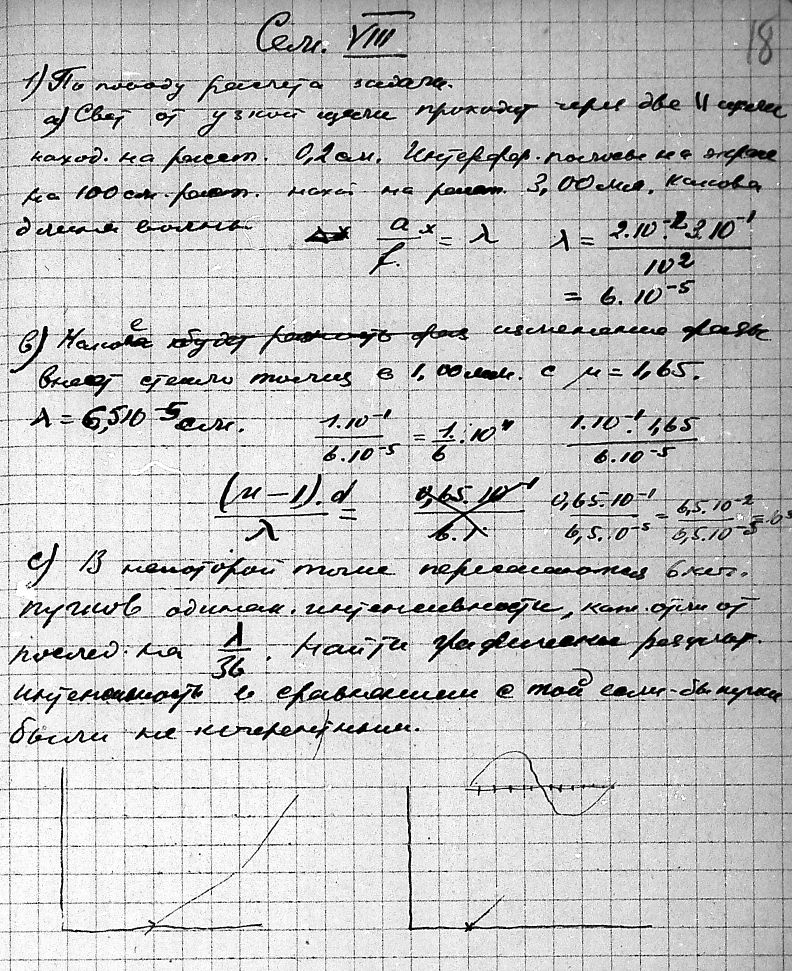 Сем. VIII
18
1) По поводу расчета задачи.
a) Свет от узкой щели проходит через две || щели
наход. на расст. 0,2 см. Интерфер. полосы на экране
на 100 см. расст. на расст. 3,00 мм. Какова
длина волны. a/f. x = λ λ = 2.10⁻².3.10⁻¹/10²
= 6.10⁻⁵
в) Какое изменение фазы
внесет стекло толщ в 1,00 мм. с μ = 1,65.
λ = 6,5 10⁻⁵ см. 1.10⁻¹/6.10⁻⁵ = 1/6 . 10⁴ 1.10⁻¹.1,65/6.10⁻⁵
(μ – 1).d/λ = 0,65.10⁻¹/6.λ 0,65.10⁻¹/6,5.10⁻⁵ = 6,5.10⁻²/6,5.10⁻⁵ =
c) В некоторой точке пересекаются 6
пучков одинак. интенсивности, кажд. отли от
послед. на λ/36. Найти графически результ.
интенсивность в сравнении с той если-бы пучки
были не когерентными.